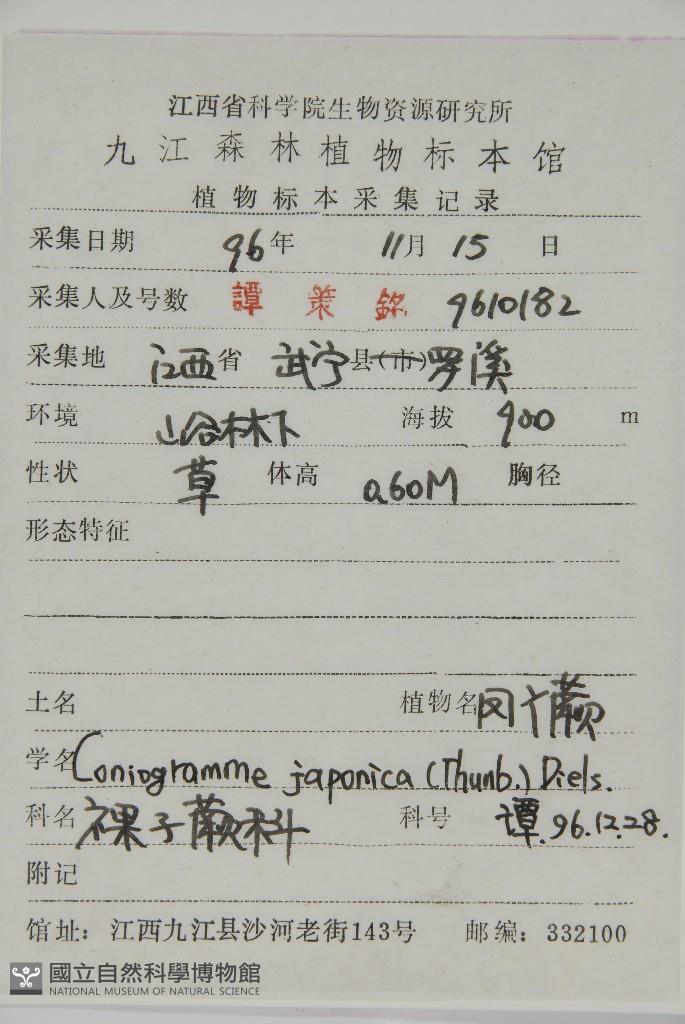 江西省科学院生物资源研究所
九江森林植物标本馆
植物标本采集记录
采集日期 96年 11月 15 日
采集人及号数 譚策銘 9610182
采集地 江西省 武宁县(市)罗溪
环境 山谷林下 海拔 900 m
性状 草 体高 0.60M 胸径
形态特征
土名 植物名 凤丫蕨
学名 Coniogramme japonica (Thunb.) Diels.
科名 裸子蕨科 科号 谭.96.12.28.
附记
馆址：江西九江县沙河老街143号 邮编：332100
國立自然科學博物館
NATIONAL MUSEUM OF NATURAL SCIENCE